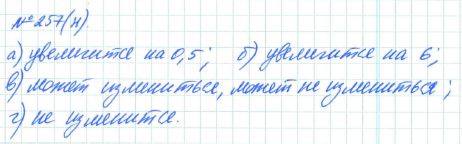 № 257(н)
а) увеличится на 0,5; б) увеличится на 6;
в) может измениться, может не измениться;
г) не изменится.